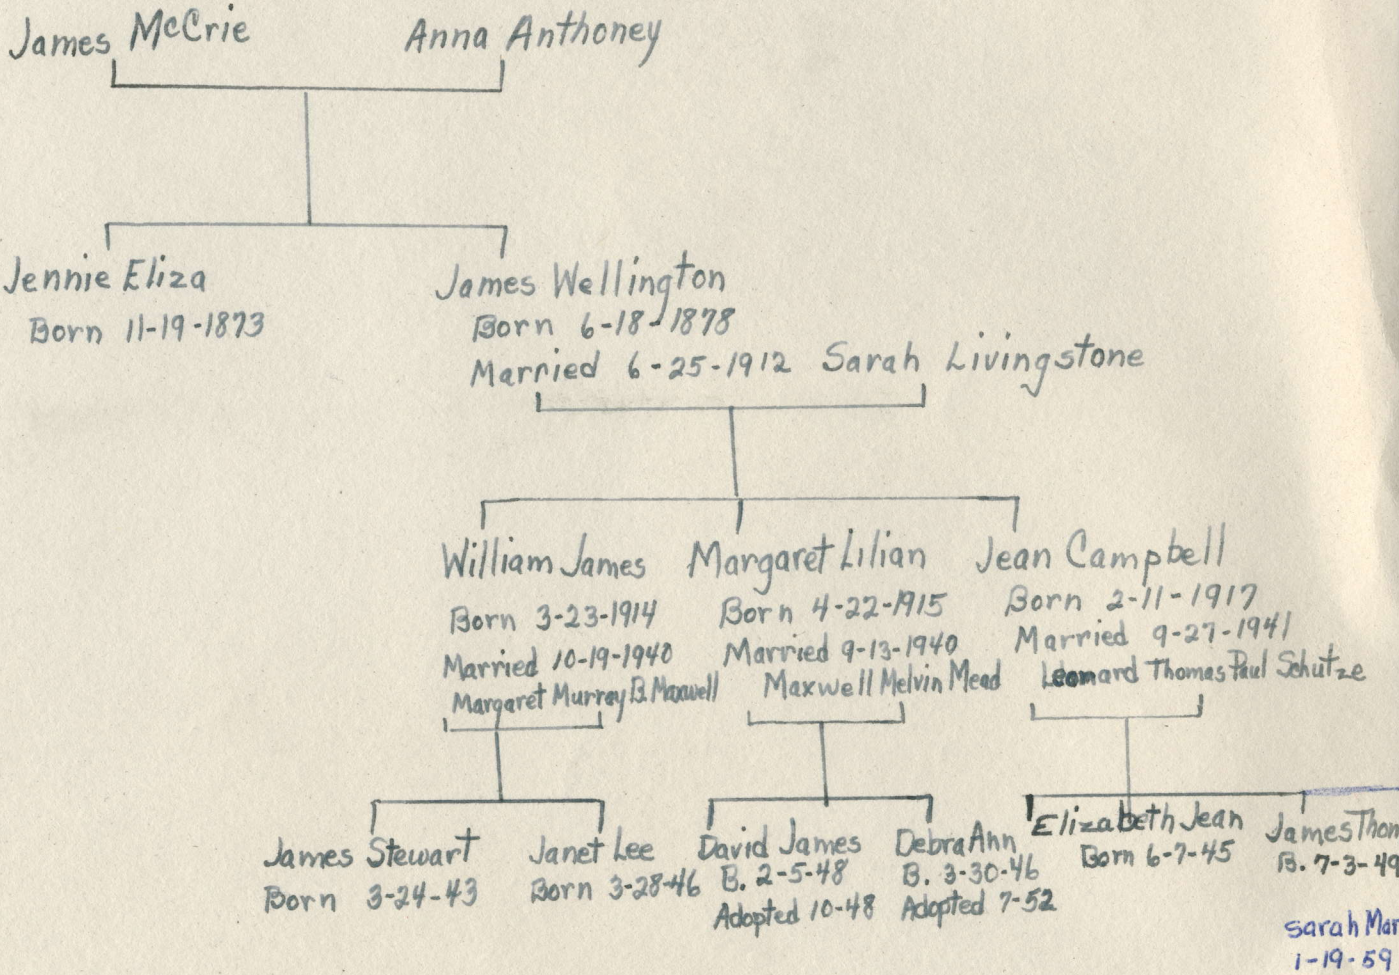 James McCrie Anna Anthoney
Jennie Eliza
Born 11-19-1873
James Wellington
Born 6-18-1878
Married 6-25-1912 Sarah Livingstone
William James
Born 3-23-1914
Married 10-19-1940
Margaret Murray B. Maxwell
Margaret Lilian
Born 4-22-1915
Married 9-13-1940
Maxwell Melvin Mead
Jean Campbell
Born 2-11-1917
Married 9-27-1941
Leonard Thomas Paul Schutze
James Stewart
Born 3-24-43
Janet Lee
Born 3-28-46
David James
B. 2-5-48
Adopted 10-48
Debra Ann
B. 3-30-46
Adopted 7-52
Elizabeth Jean
Born 6-7-45
James Thom
B. 7-3-49
Sarah Mar
1-19-59